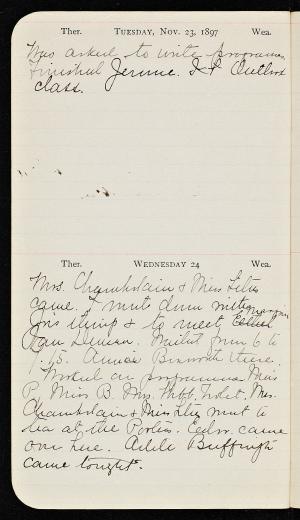 Ther. Tuesday, Nov. 23, 1897 Wea.
Was asked to write programmes.
Finished Jerome. I & Outlook
class.
Ther. Wednesday 24 Wea.
Mrs. Chamberlain & Miss
came. I went down with
& to meet Ethel
Van. Waited from 6 to
7.15. Annie there.
Worked on programmes. Miss
P. Miss B. Mrs. Webb, Mrs.
Chamberlain & Miss went to
tea at the Porters. Edw. came
over here. Adele Buffington
came tonight.